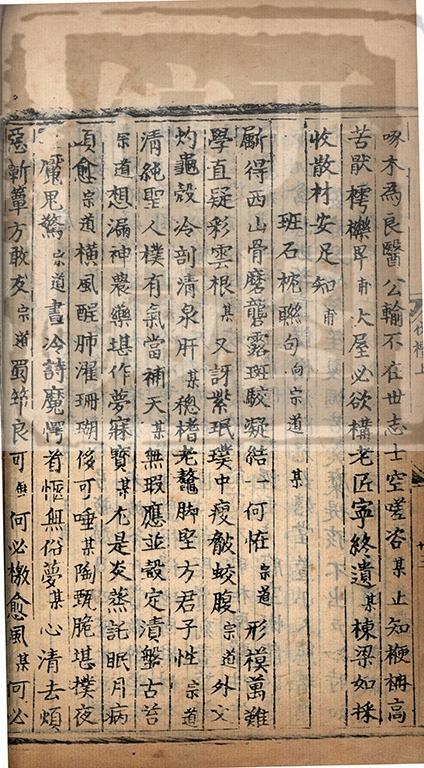 啄木為良醫公輸不在世志士空嗟咨某止知梗柟高
苦厭樗櫟卑甫大屋必欲構老匠寧終遺某棟梁如採
收散材安足知甫
班石枕聯句向宗道某
斸得西山骨磨礲露斑駮凝結一何恠宗道形模萬難
學直疑彩雲根某又訝紫珉璞中瘦皴蛟腹宗道外文
灼龜殼冷剖清泉肝某穩楮老鼇脚堅方君子性宗道
清純聖人樸有氣當補天某無瑕應並瑴定漬盤古苔
宗道想漏神農藥堪作夢寐寶某尤是炎蒸託眠月病
頂愈宗道橫風酲肺濯珊瑚侈可唾某陶甄脆堪撲夜
魘鬼驚宗道晝冷詩魔愕首恆無俗夢某心清去煩
惡斬簟方敢友宗道蜀笻良可無何必檄愈風某何必